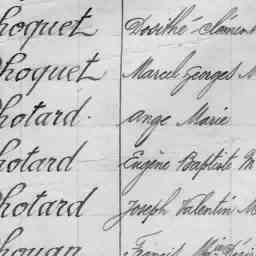 hoquet Dosithé Clémen
hoquet Marcel Georges M
hotard. Ange Marie
hotard Eugène Baptiste M
hotard Joseph Valentin M
houan Francis